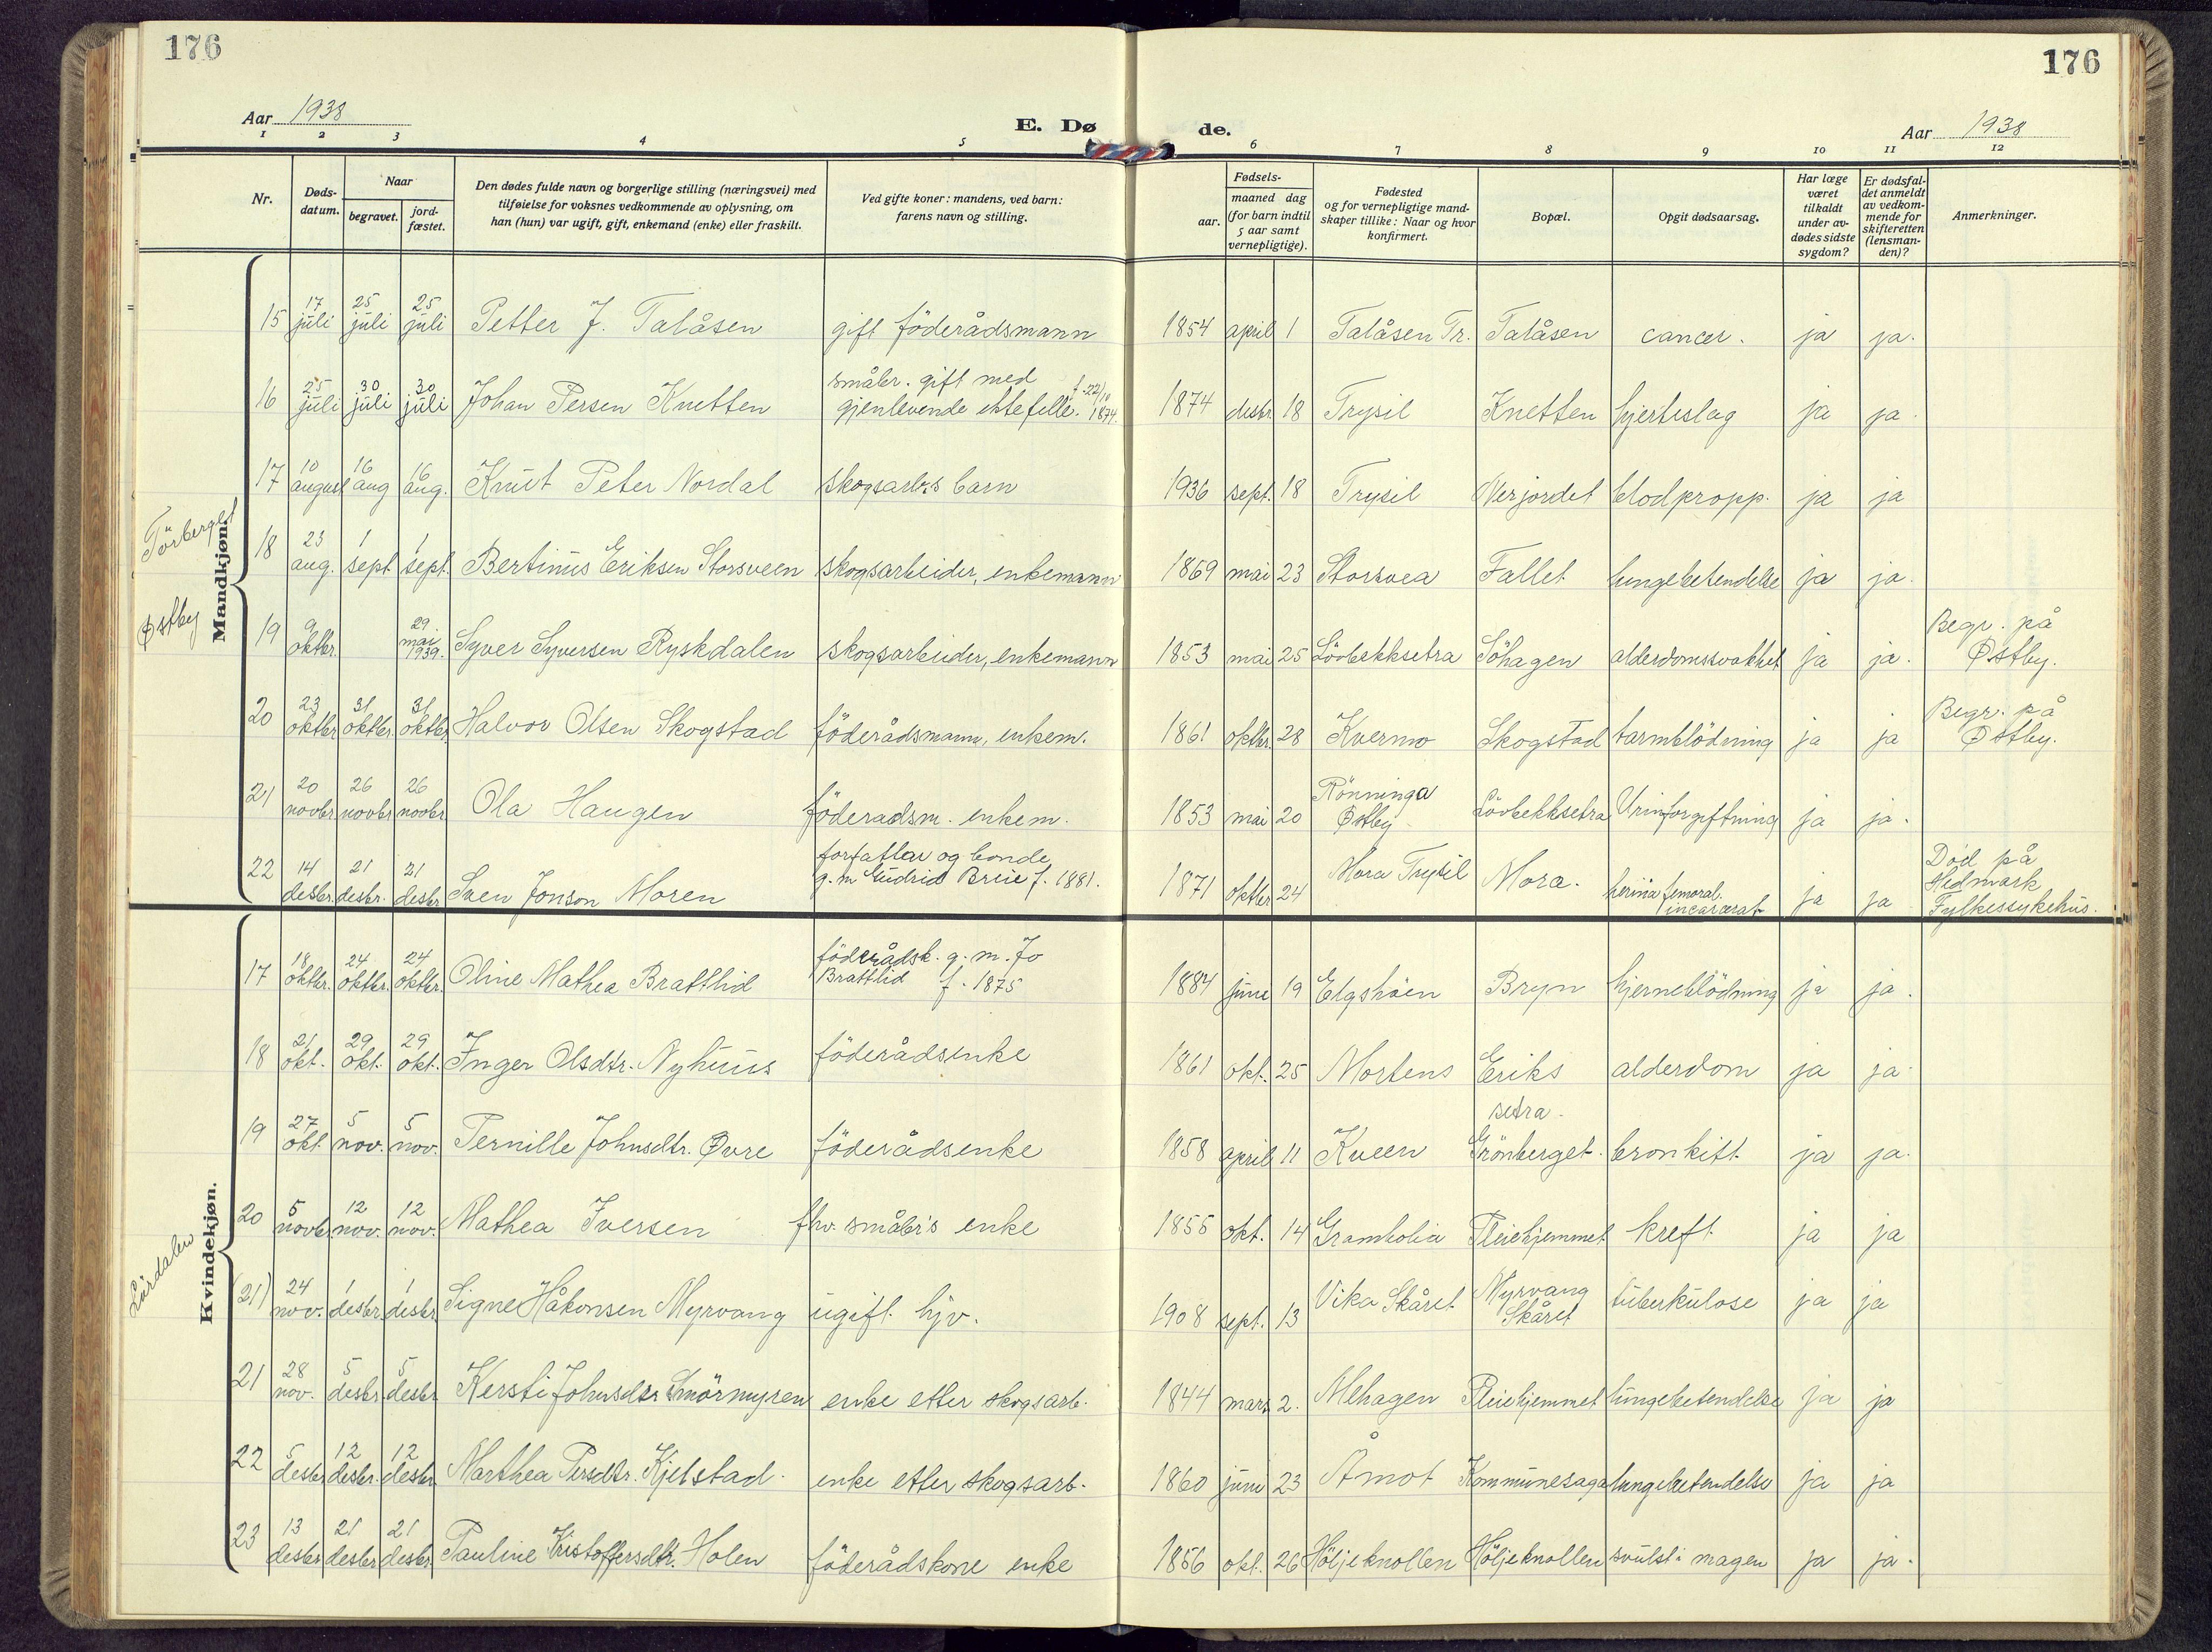 176
176
Aar 1938
E. Dø
de.
Aar 1938
1 2 3 4 5 6 7 8 9 10 11 12
Nr.
Døds-
datum.
Naar
begravet.
jord-
fæstet.
Den dødes fulde navn og borgerlige stilling (næringsvei) med
tilføielse for voksnes vedkommende av oplysning, om
han (hun) var ugift, gift, enkemand (enke) eller fraskilt.
Ved gifte koner: mandens, ved barn:
farens navn og stilling.
Fødsels-
aar.
maaned dag
(for barn indtil
5 aar samt
vernepligtige).
Fødested
og for vernepligtige mand-
skaper tillike: Naar og hvor
konfirmert.
Bopæl.
Opgit dødsaarsag.
Har læge
været
tilkaldt
under av-
dødes sidste
sygdom?
Er dødsfal-
det anmeldt
av vedkom-
mende for
skifteretten
(lensman-
den)?
Anmerkninger.
Mandkjøn.
15 17 juli 25 juli 25 juli Petter J. Talåsen gift föderådsmann 1854 april 1 Talåsen Tr. Talåsen cancer. ja ja.
16 25 juli 30 juli 30 juli Johan Persen Knetten småbr. gift med
gjenlevende ektefelle. f. 22/10 1874. 1874 desbr. 18 Trysil Knetten hjerteslag ja ja.
17 10 august 16 aug 16 aug. Knut Peter Nordal skogsarb.s barn 1936 sept. 18 Trysil Nerjordet blodpropp. ja ja
Törberget
18 23 aug. 1 sept 1 sept. Bertinus Eriksen Storsveen skogsarbeider, enkemann 1869 mai 23 Storsvea Fallet lungebetendelse ja ja.
Østby
19 9 oktbr. 29 mai 1939. Syver Syversen Ryskdalen skogsarbeider, enkemann 1853 mai 25 Lövbekksetra Söhagen alderdomssvakhet ja ja. Begr. på
Østby.
20 23 oktbr. 31 oktbr. 31 oktbr. Halvor Olsen Skogstad föderådsmann, enkem. 1861 oktbr. 28 Kvermo Skogstad tarmblödning ja ja Begr. på
Østby.
21 20 novbr 26 novbr 26 novbr Ola Haugen föderadsm. enkem. 1853 mai 20 Rönninga
Østby Lövbekksetra Urinforgiftning ja ja.
22 14 desbr. 21 desbr. 21 desbr Sven Jonson Moren forfatter og bonde
g. m Gudrid Breie f. 1881. 1871 oktbr 24 Mora Trysil Mora. hernia femoral.
incarcerat ja ja Död på
Hedmark
Fylkessykehus.
Kvindekjøn.
17 18 oktbr. 24 oktbr. 24 oktbr. Oline Mathea Brattlid föderådsk. g. m. Jo
Brattlid f. 1875 1884 juni 19 Elgshöen Bryn hjerneblödning ja ja.
18 21 okt. 29 okt. 29 okt. Inger Olsdtr. Nyhuus föderådsenke 1861 okt. 25 Mortens Eriks
setra. alderdom ja ja.
19 27 okt 5 nov. 5 nov. Pernille Johnsdtr. Øvre föderådsenke 1858 april 11 Kveen Grönberget. bronkitt. ja ja.
20 5 novbr 12 nov. 12 nov. Mathea Iversen fhv. småbr's enke 1855 okt. 14 Grambolia Pleiehjemmet kreft. ja ja
(21) 24 nov. 1 desbr. 1 desbr. Signe Håkonsen Myrvang ugift. hjv. 1908 sept. 13 Vika Skåret Myrvang
Skåret tuberkulose ja ja
21 28 nov. 5 desbr. 5 desbr Kersti Johnsdtr Smörmyren enke etter skogsarb. 1844 mars 2. Mehagen Pleiehjemmet lungebetendelse ja ja
22 5 desbr 12 desbr. 12 desbr Marthea Persdtr. Kjelstad. enke etter skogsarb. 1860 juni 23 Åmot Kommunesaga lungebetendelse ja ja
23 13 desbr 21 desbr 21 desbr Pauline Kristoffersdtr. Holen föderådskone enke 1856 okt. 26 Höljeknollen Höljeknollen svulst i magen ja ja.